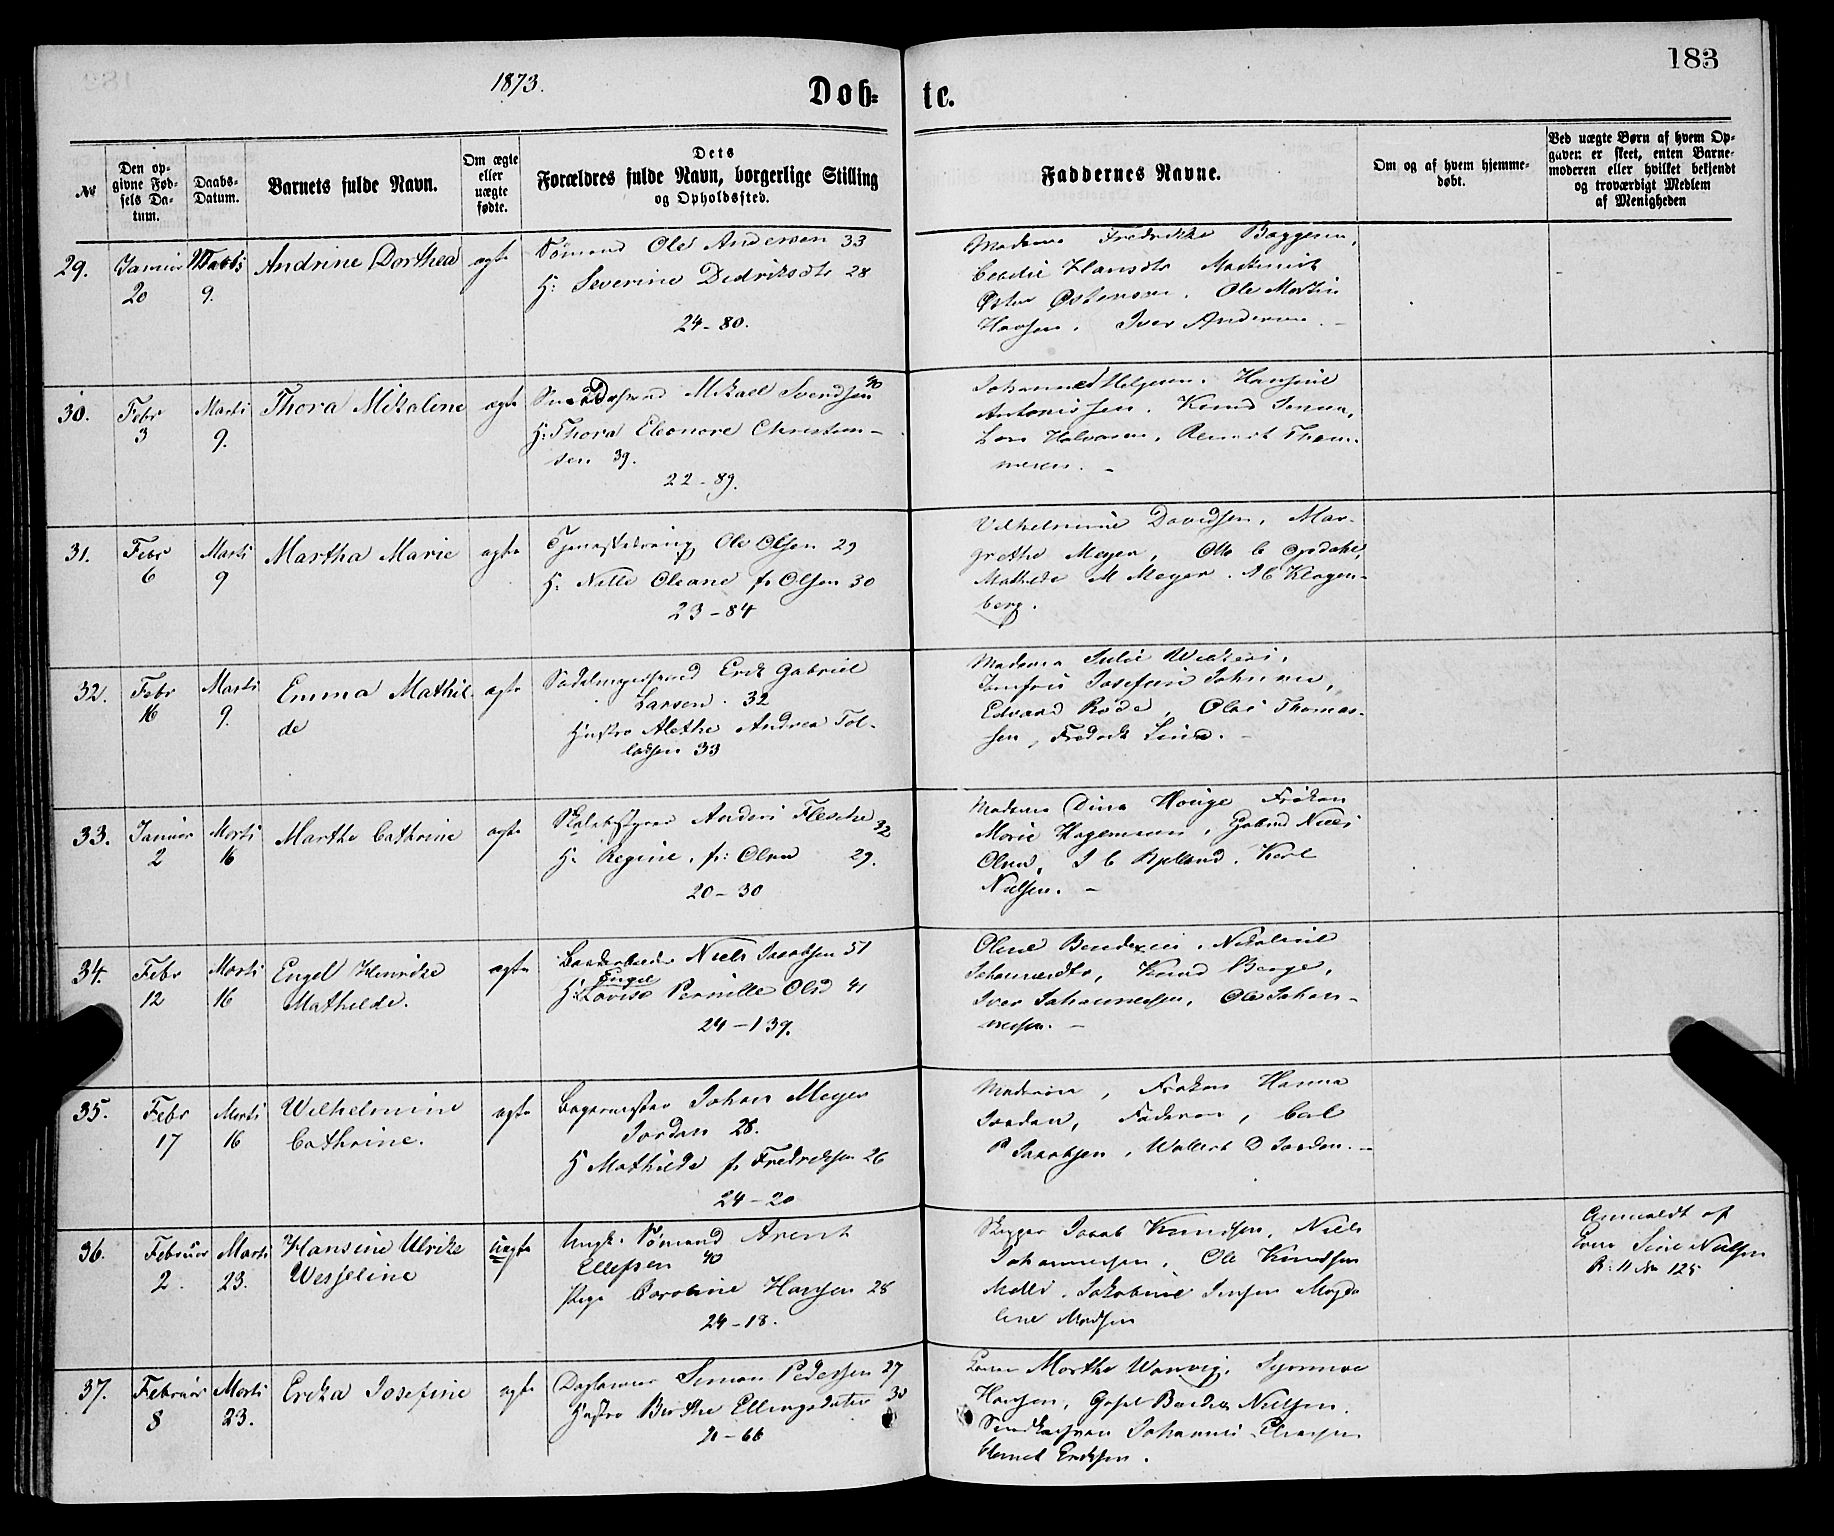 183
1873.
Døb=
te.
№
Den op-
givne Fød-
sels Da-
tum.
Daabs-
Datum.
Barnets fulde Navn.
Om ægte
eller
uægte
fødte.
Dets
Forældres fulde Navn, borgerlige Stilling
og Opholdssted.
Faddernes Navne.
Om og af hvem hjemme-
døbt.
Ved uægte Børn af hvem Op-
gaven er skeet, enten Barne-
moderen eller hvilket bekjendt
og troværdigt Medlem
af Menigheden
29.
Januar
20
Marts
9.
Andrine Dorthea
ægte
Sømand Ole Andersen 33
H: Severine Didriksdtr 28
24-80.
Madame Fredrikke Baggesen,
Hansdtr
Ole Martin
Hansen, Iver Andersen. -
30.
Febr
3
Marts
9.
Thora Mikaline
ægte
Mikael Svendsen 40
H: Thora Eleonore Christian-
sen 39.
22-89.
Helgesen. Hansine
Antonissen, Knud
Halvorsen,
31.
Febr
6
Marts
9
Martha Marie
ægte
Ole Olsen 29
H: Nille Oleane f. Olsen 30
23-84
Vilhelmine Davidsen, Mar-
grethe Meyer, Otto C
Mathilde M Meyer. Klagen-
berg.
32.
Febr
16
Marts
9.
Emma Mathil-
de
ægte
Sadelmagersvend Erik Gabriel
Larsen. 32
Hustro Alethe Andrea Tol-
lefsen 33
Madame Julie
Jomfru Josefine Johnsen,
Edvard Røde, Olai Thomas-
sen, Fredrik
33.
Januar
2
Marts
16
Marthe Cathrine
ægte
Anders Flesche 32
H: Regine, f: Olsen 29.
20-30
Madame Dina Houge Frøken
Marie Hagemann, Niels
Olsen, I C Kjelland. Karl
Nielsen. -
34.
Febr
12
Marts
16
Engel Henrike
Mathilde.
ægte
Niels Jacobsen 51
Engel
H: Lovise Pernille Olsd 41
24-139.
Olene Bendixen, Nikoline
Knud Berge,
Iver Johannessen, Ole Johan-
nessen. -
35.
Febr
17
Marts
16
Wilhelmine
Cathrine.
ægte
Bagermester Johan Meyer
Jordan 28.
H Mathilde f. Fredriksen 26
24-20
Moderen, Frøken Hanna
Jordan, Faderen, Carl
P Jacobsen, Wollert D Jordan. -
36.
Februar
2.
Marts
23.
Hansine Ulrike
Wesseline
Uægte
Ungk. Sømand Arent
Ellefsen 40
Pige Caroline Hansen 28
24-18.
Skipper Jacob Knudsen, Niels
Johannessen, Ole Knudsen
Jakobine Jensen Magda
lene Madsen
Anmeldt af
Kone Sine Nielsen
R: 11 No 125
37.
Februar
8
Marts
23.
Erika Josefine
ægte
Daglønner Simon Pedersen 27
Hustro Birthe Ellingsdatter 30
21-66
Kone Marthe Wanvig, Synnøve
Hansen, Nielsen.
Johannes
Eriksen.